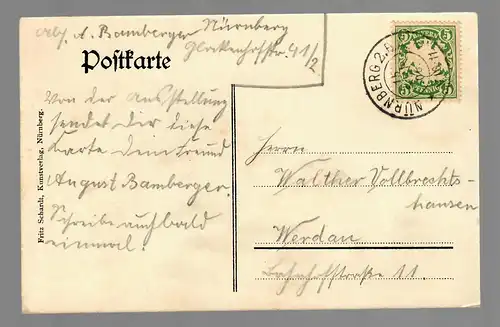 Abs. A. Bamberger Nürnberg
Glockenhofstr. 41/2
Postkarte
Von der Ausstellung
sendet Dir diese
Karte Dein Freund
August Bamberger.
Schreibe auch bald
einmal!
Fritz Schardt, Kunstverlag, Nürnberg.
BAYERN
5 5
5 5
PFENNIG
NÜRNBERG 2.B.
Herrn
Walther Vollbrechts-
hausen
Werdau
Bahnhofstraße 11.